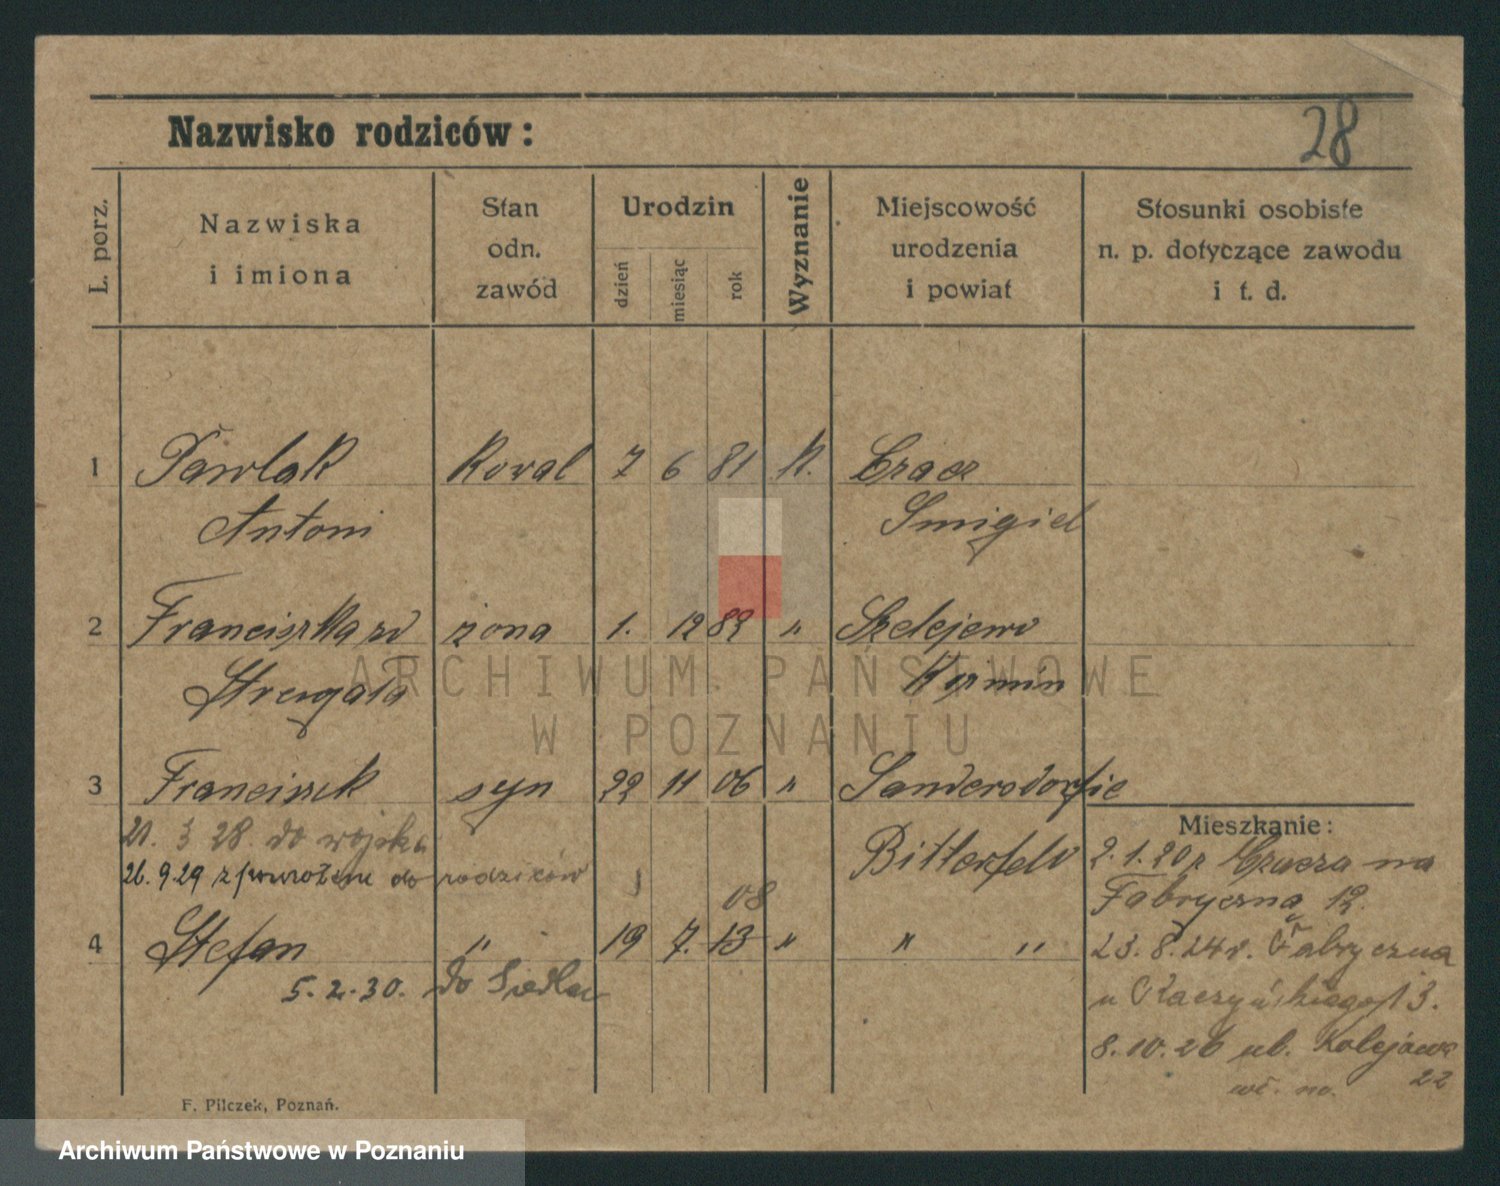 28
Nazwisko rodziców:
L. porz.
Nazwiska
i imiona
Stan
odn.
zawód
Urodzin
dzień
miesiąc
rok
Wyznanie
Miejscowość
urodzenia
i powiat
Stosunki osobiste
n. p. dotyczące zawodu
i t. d.
1 Pawlak Kowal 7 6 81 k. Czacz
Antoni Smigiel
2 Franciszka zd żona 1. 12 82 " Szelejewo
Kozmin
3 Franciszek syn 22 11 06 " Sandersdorfie
21. 3 28. do wojska
Bitterfeld
26.9.29 z powrotem do rodziców
08
4 Stefan " 19 7. 13 " " "
5.2.30. do Siedlec
Mieszkanie:
2.1.20 z Czacza na
Fabryczną 12.
23.8.24 r. Fabryczna
u Raczyńskiego 13.
8.10.26 ul. Kolejowa
22
wł. no.
F. Pilczek, Poznań.
ARCHIWUM PAŃSTWOWE
W POZNANIU
Archiwum Państwowe w Poznaniu